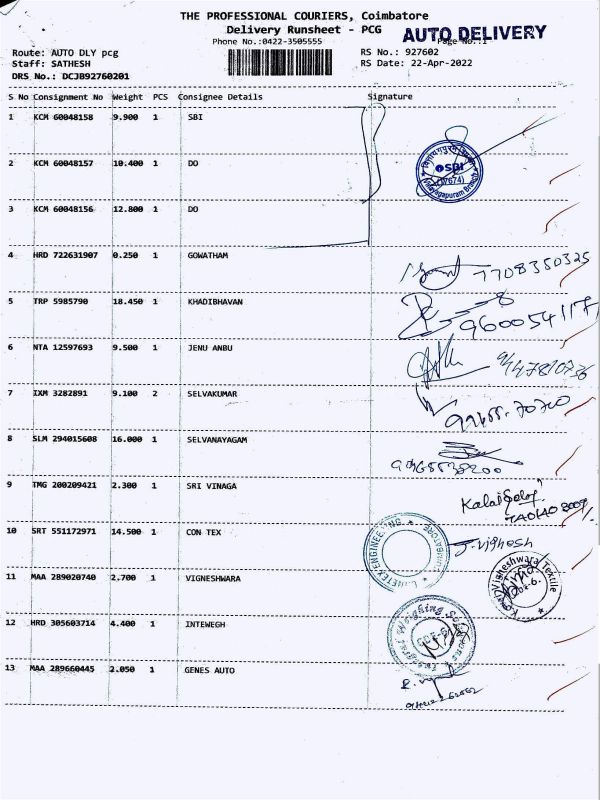 THE PROFESSIONAL COURIERS, Coimbatore
Delivery Runsheet - PCG
AUTO DELIVERY
Phone No.:0422-3505555
Page No.:1
Route: AUTO DLY pcg
RS No.: 927602
Staff: SATHESH
RS Date: 22-Apr-2022
DRS No.: DCJB92760201
S No Consignment No Weight PCS Consignee Details Signature
1 KCM 60048158 9.900 1 SBI
2 KCM 60048157 10.400 1 DO
SBI
3 KCM 60048156 12.800 1 DO
4 HRD 722631907 0.250 1 GOWATHAM
7708350325
5 TRP 5985790 18.450 1 KHADIBHAVAN
960054117
6 NTA 12597693 9.500 1 JENU ANBU
7 IXM 3282891 9.100 2 SELVAKUMAR
8 SLM 294015608 16.000 1 SELVANAYAGAM
9 TMG 200209421 2.300 1 SRI VINAGA
10 SRT 551172971 14.500 1 CON TEX
J. Vighesh
11 MAA 289020740 2.700 1 VIGNESHWARA
12 HRD 305603714 4.400 1 INTEWEGH
13 MAA 289660445 2.050 1 GENES AUTO